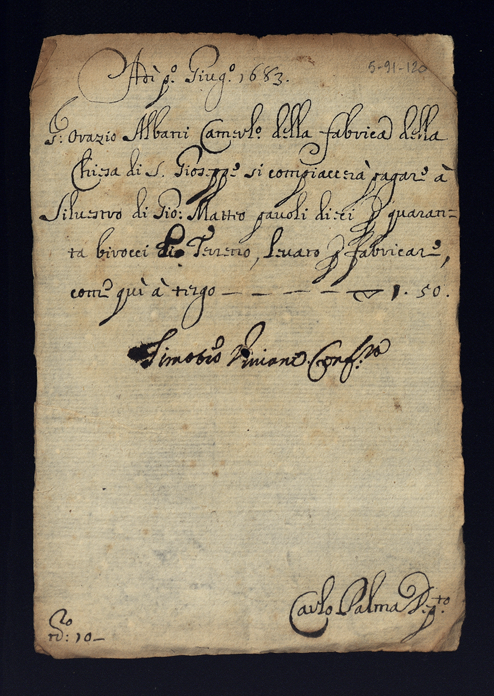 Adì p.º Giug.º 1683.
5-91-120
S.r Orazio Albani Camerl.º della fabrica della
Chiesa di S. Gioseppe si compiacerà pagare à
Silvestro di Gio: Matteo pavoli di:ci p quaran=
ta birocci di Terreno, levato p fabricare,
come quì à tergo — — — — — 1. 50.
Timoteo Viviani Conf.re
Carlo Palma D:to
n.º: 10–